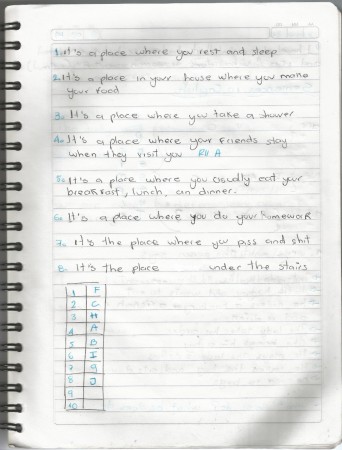 1. It's a place where you rest and sleep
2. It's a place in your house where you make
your food
3. It's a place where you take a shower
4. It's a place where your friends stay
when they visit you RII A
5. It's a place where you usually eat your
breakfast, lunch, an dinner.
6. It's a place where you do your homework
7. It's the place where you piss and shit
8. It's the place under the stairs
1 F
2 C
3 H
4 A
5 B
6 I
7 g
8 J
9
10